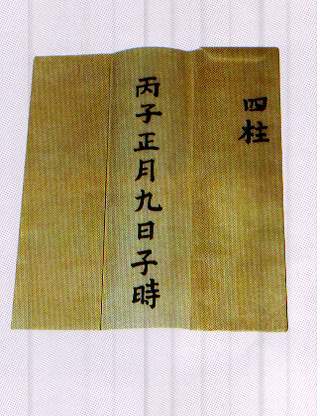 四柱
丙子正月九日子時